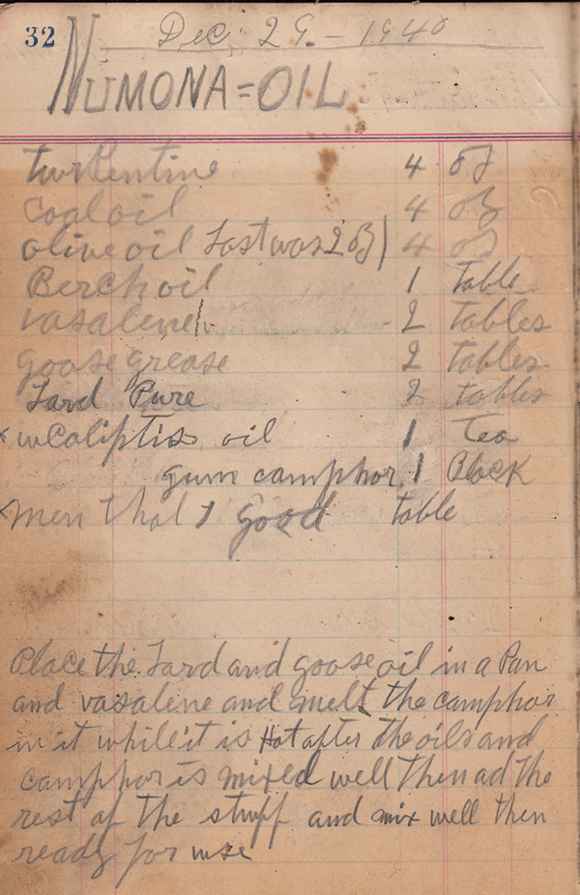 32
Dec. 29. - 1940
NUMONA = OIL
turpentine 4 oz
Coal oil 4 oz
olive oil Last was 2 oz) 4 oz
Berch oil 1 table
vasalene 2 tables
goose grease 2 tables
Lard Pure 2 tables
x ucaliptis oil 1 Tea
gum camphor 1 Block
x men thol 1 good table
Place the Lard and goose oil in a Pan
and vasalene and melt the camphor
in it while it is Hot after the oils and
camphor is mixed well then ad the
rest of the stuff and mix well then
ready for use